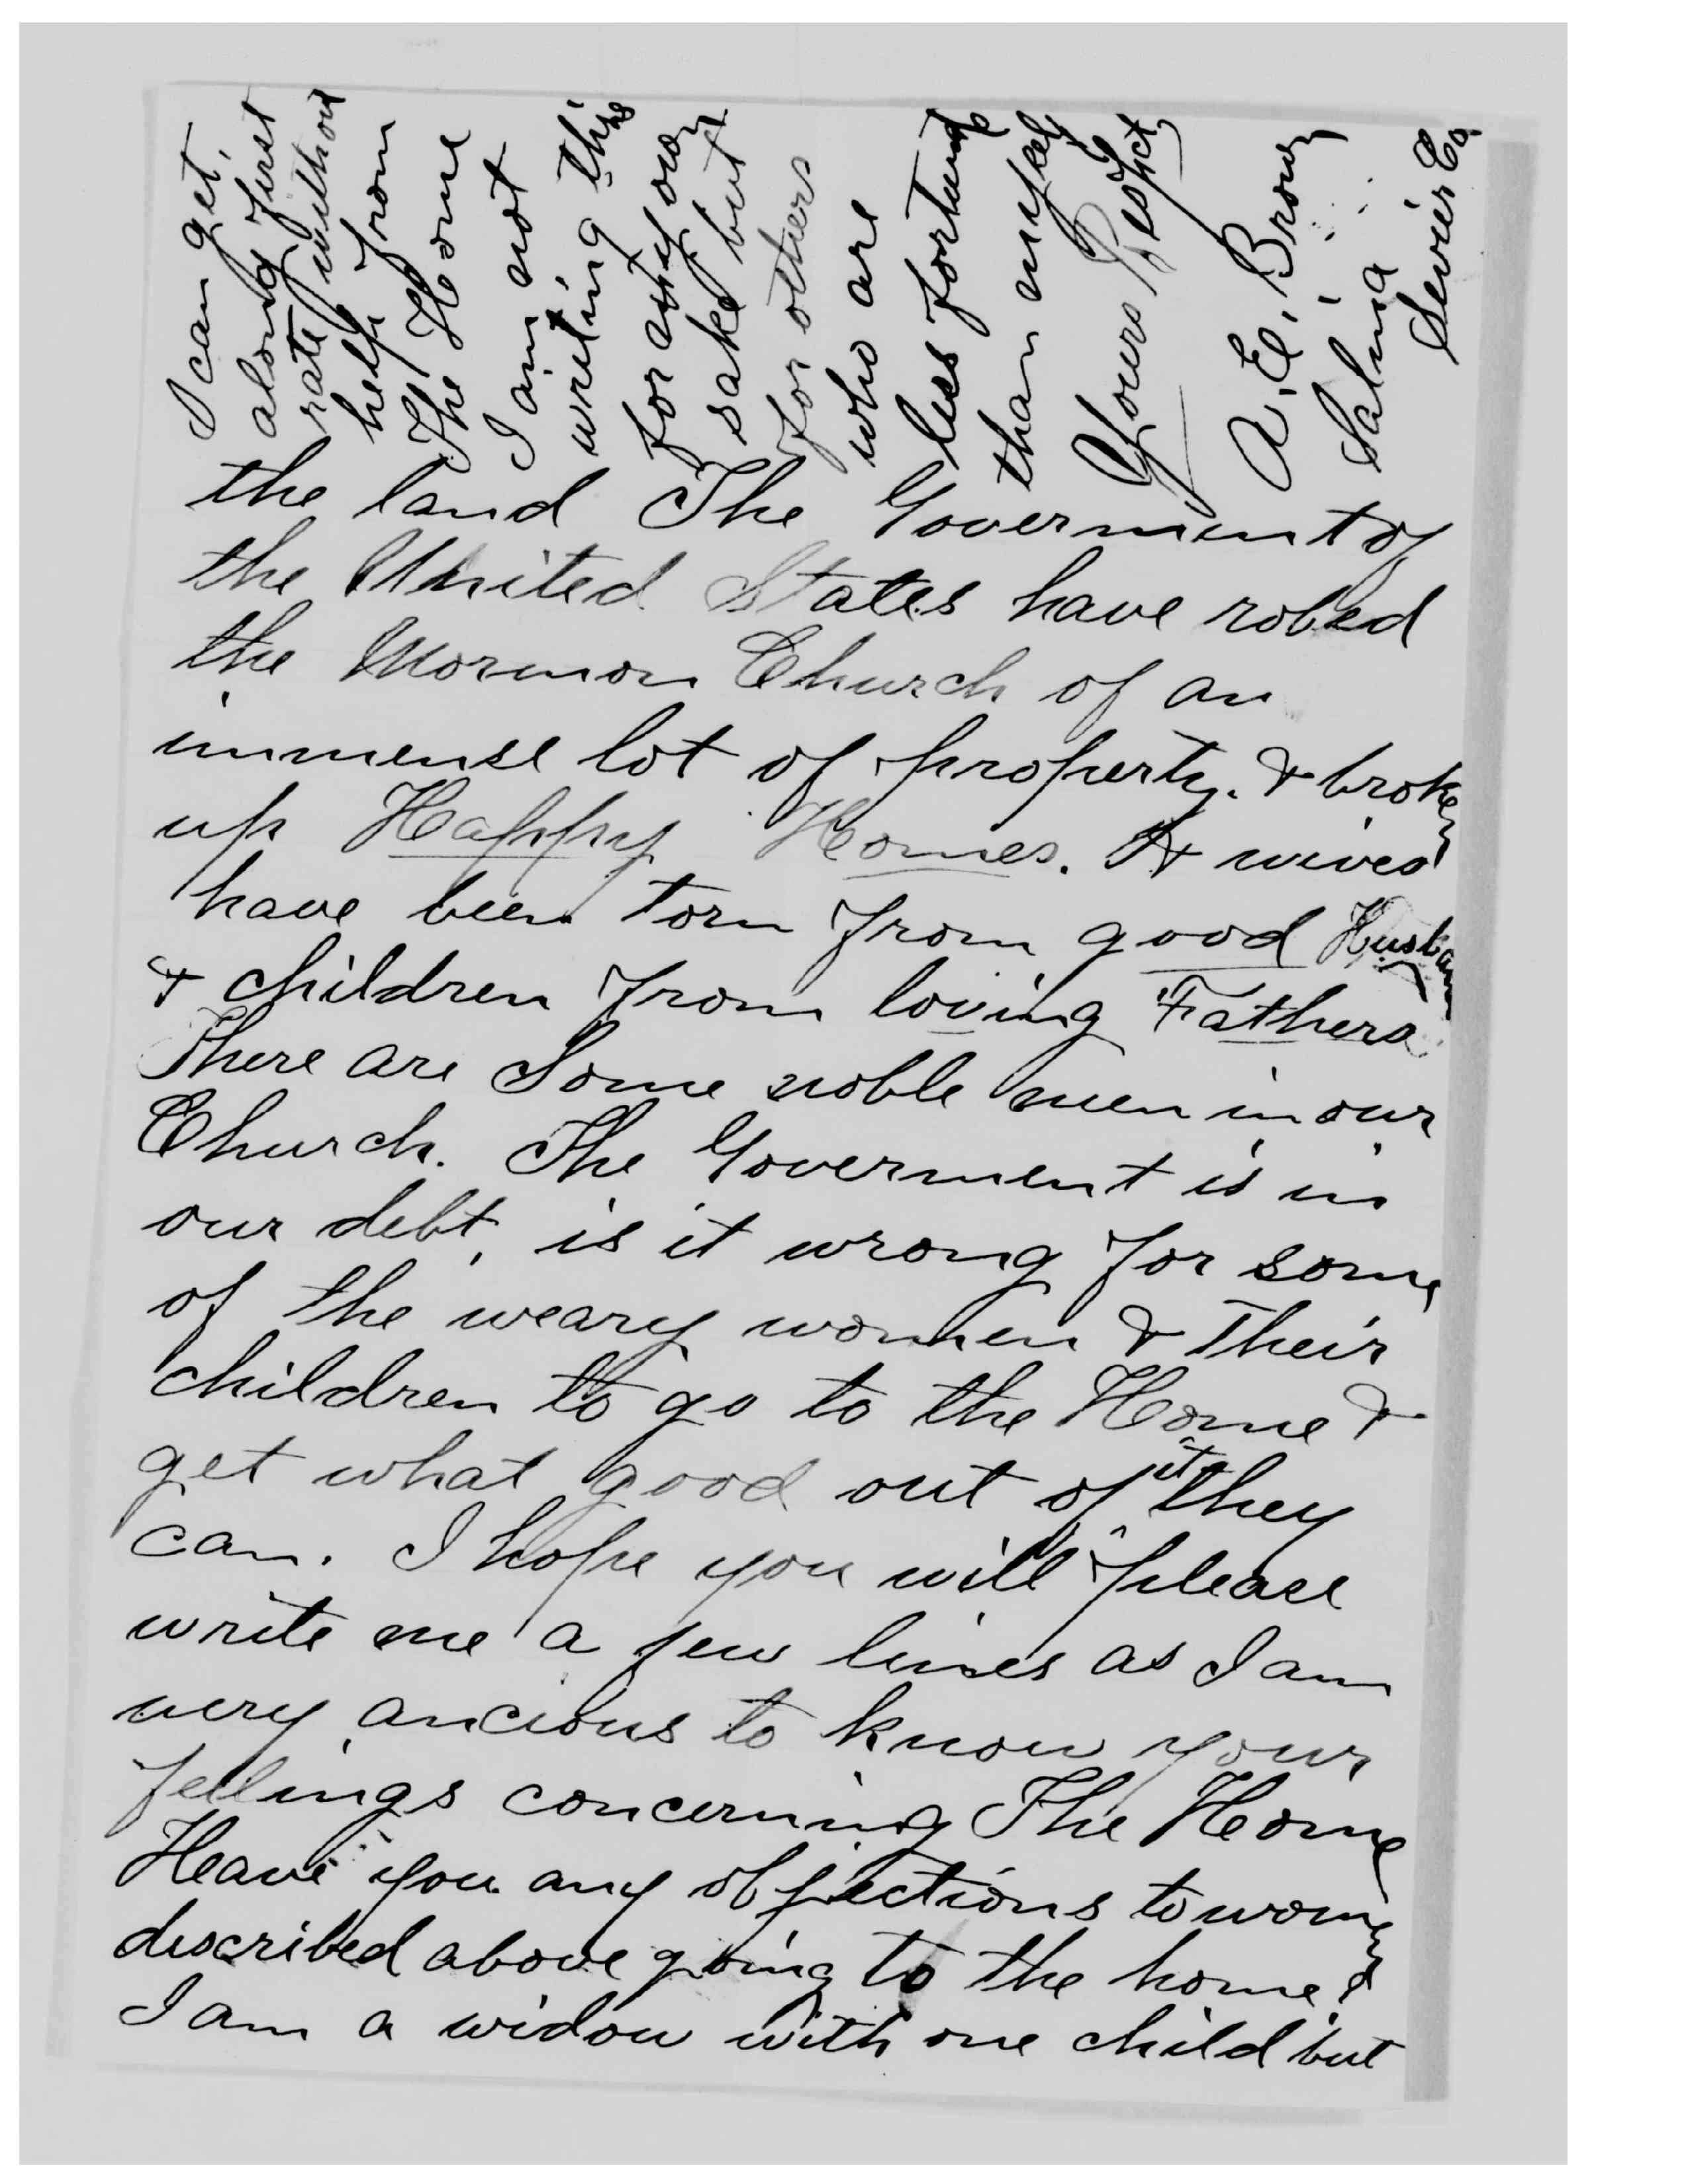 the land The Goverment of
the United States have robed
the Mormon Church of an
immense lot of property. & broken
up Happy Homes. & wives
have been torn from good Husbands
& children from loving Fathers
There are Some noble men in our
Church. The Goverment is in
our debt, is it wrong for some
of the weary women & Their
children to go to the Home &
get what good out of it they
can. I hope you will please
write me a few lines as I am
very ancious to know your
feelings concerning The Home
Have you any objections to women
described above going to the home?
I am a widow with one child but
I can get
along first
rate without
help from
The Home
I am not
writing this
for my own
sake but
for others
who are
less fortunate
than myself
Yours Respct
A. E. Brown
Salina
Sevier Co